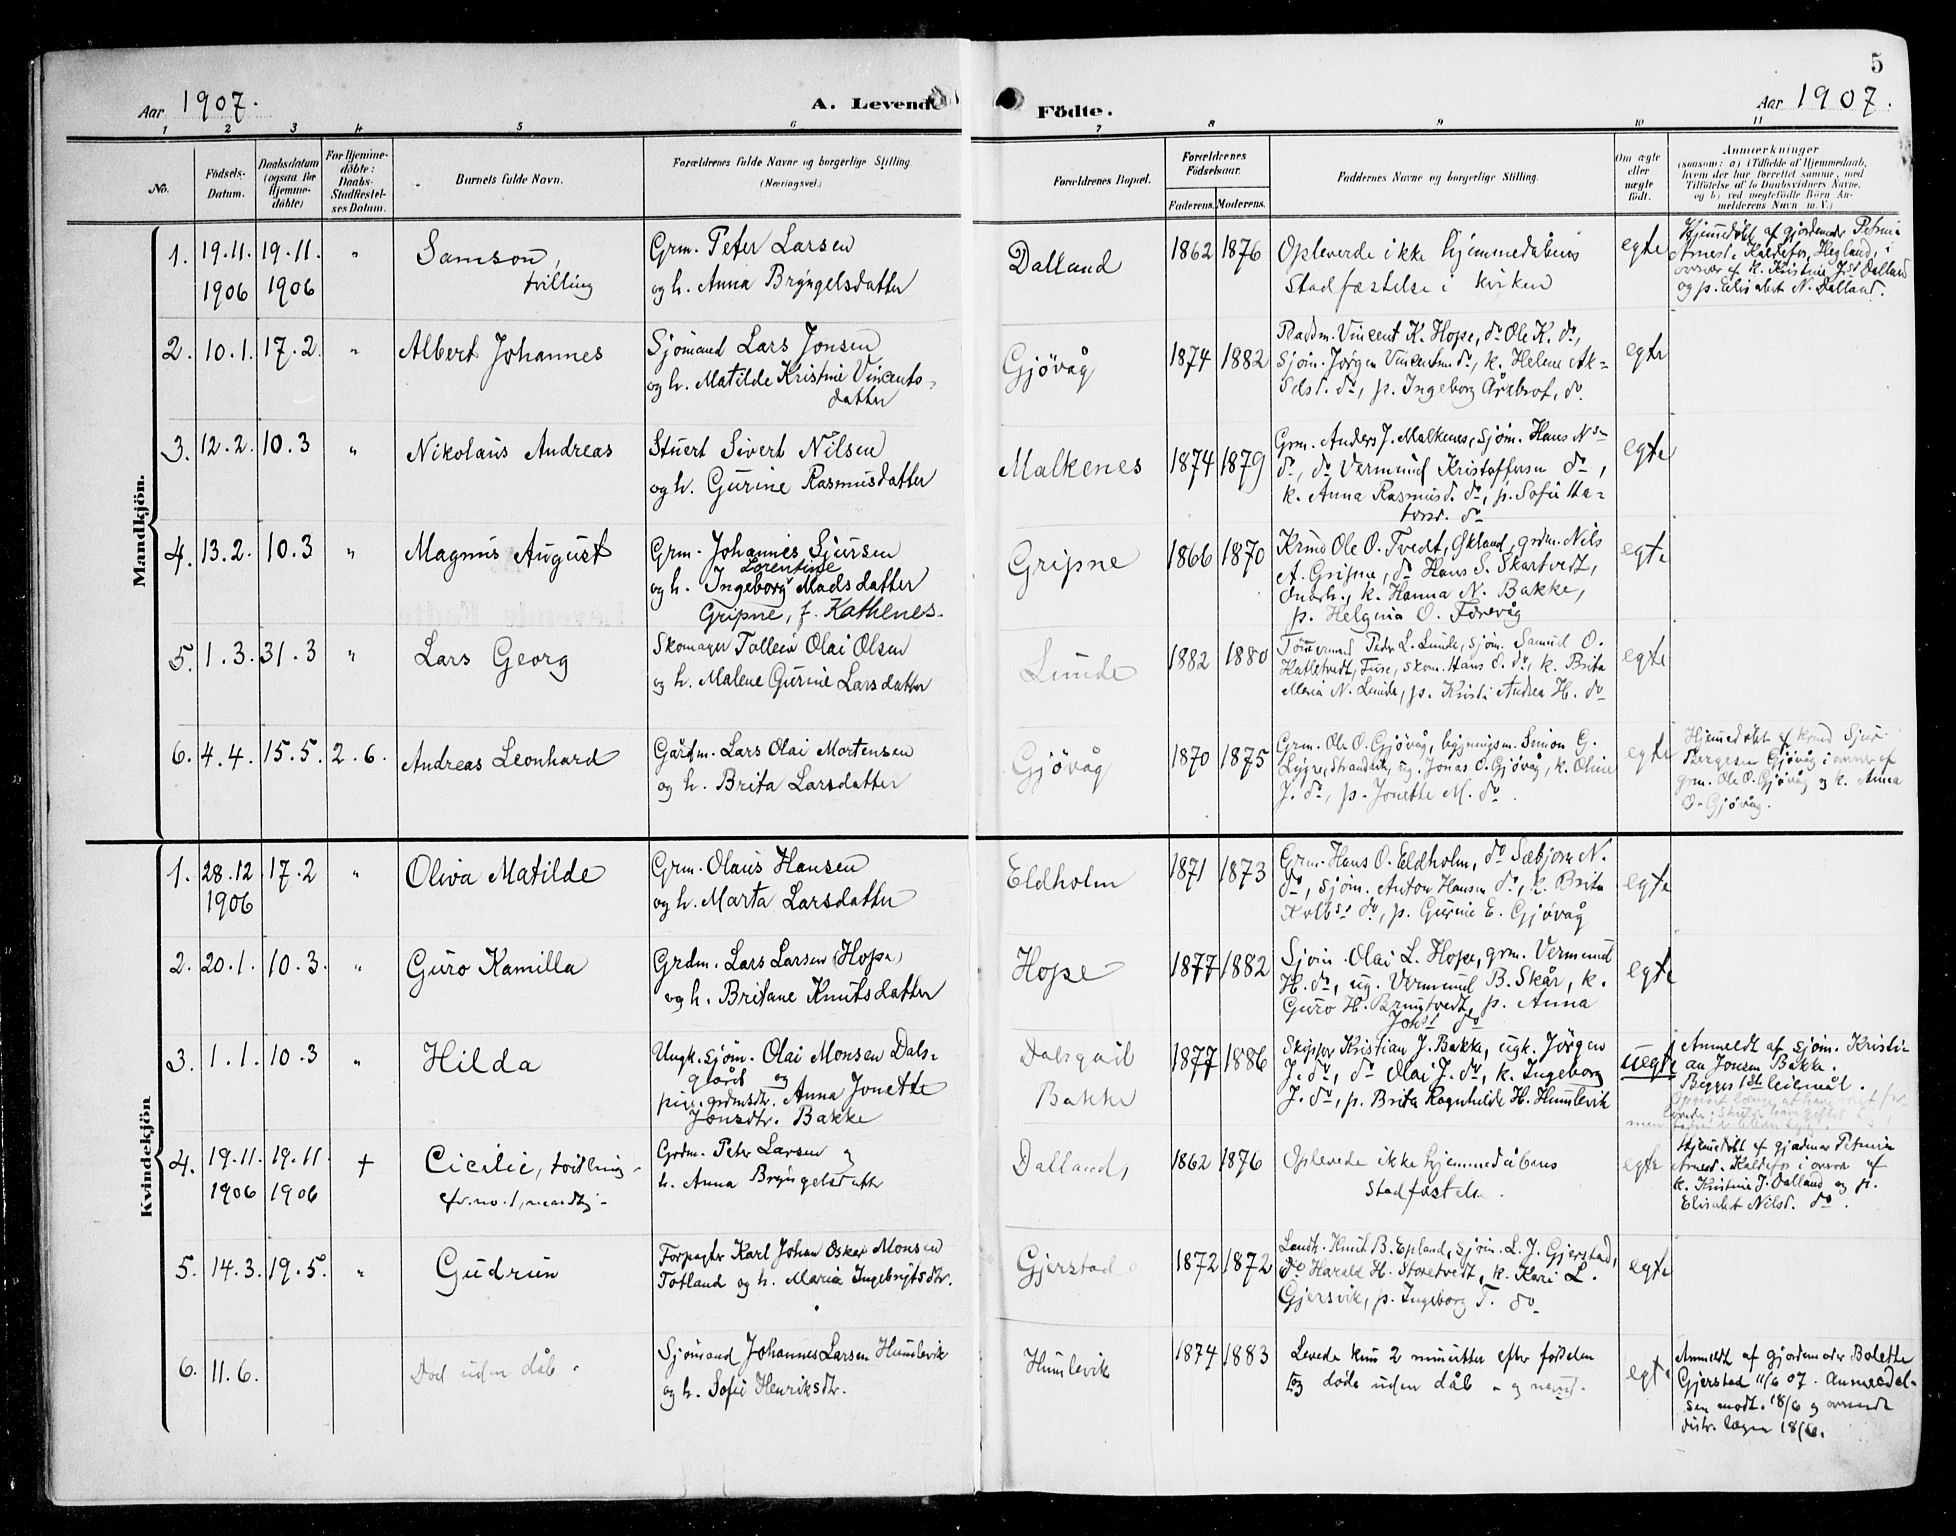 5
Aar 1907.
A. Levende
Födte.
Aar 1907.
1 2 3 4 5 6 7 8 9 10 11
No.
Födsels-
Datum.
Daabsdatum
(ogsaa for
Hjemme-
døbte)
For Hjemme-
døbte:
Daabs-
Stadfæstel-
ses Datum.
Barnets fulde Navn.
Forældrenes fulde Navne og borgerlige Stilling.
(Næringsvei.)
Forældrenes Bopæl.
Forældrenes
Födselsaar.
Faderens. Moderens.
Faddernes Navne og borgerlige Stilling.
Om ægte
eller
uægte
födt.
Anmærkninger
(saasom: a) i Tilfælde af Hjemmedaab,
hvem der har forrettet samme, med
Tilföielse af to Daabsvidners Navne,
og b) ved uægtefödte Börn An-
melderens Navn m. V.)
Mandkjön.
1. 19.11. 19.11. " Samson,
1906 1906 tvilling
Grm. Peter Larsen
og h. Anna Bryngelsdatter
Dalland
1862 1876
Opleverde ikke hjemmedåbens
Stadfæstelse i kirken
egte
Hjemmedøbt af gjordemoder Petrine
Arnesd. Kaldefos, Hegland, i
overvær af k. Kristine Jsd Dalland
og p. Elisabet N. Dalland.
2. 10.1. 17.2. " Albert Johannes
Sjömand Lars Jonsen
og h. Matilde Kristine Vincents-
datter
Gjövåg
1874 1882
Vincent K. Hope, do Ole K. do,
Sjöm. Jörgen Vincentsen do, k. Helene
do, p. Ingeborg Årebrot, do.
egte
3. 12.2. 10.3 " Nikolaus Andreas
Stuert Sivert Nilsen
og h. Gurine Rasmusdatter
Malkenes
1874 1879
Grm. Anders J. Malkenes, sjöm. Hans Nsn
do, do Vermund Kristoffersen do,
k. Anna Rasmusd. do, p. Sofie
do
egte
4. 13.2. 10.3 " Magnus August
Grm. Johannes Sjursen
Lorentine
og h. Ingeborg Madsdatter
Gripne, f. Kathenes.
Gripne
1866 1870
Krmd Ole O. Tvedt, Økland, grdm. Nils
A. Gripne, do Hans S. Skartvedt,
k. Hanna N. Bakke,
p. Helgina O. Færevåg
egte
5. 1.3. 31.3 " Lars Georg
Skomager Tolleiv Olai Olsen
og h. Malene Gurine Larsdatter
Lunde
1882 1880
Tömmermd Peder L. Lunde, sjöm. Samuel O.
Hatletvedt, Fuse, skom. Hans O. do, k. Brita
Maria N. Lunde, p. Kristi Andrea H. do
egte
6. 4.4. 15.5. 2.6. Andreas Leonhard
Gårdm. Lars Olai Mortensen
og h. Brita Larsdatter
Gjövåg
1870 1875
Grm. Ole O. Gjövåg, bygningsm. Simon G.
Lygre, Strandvik, ug. Jonas O. Gjövåg, k. Oline
J. do, p. Jonette M. do.
egte
Hjemmedøbt af krmd Sjur
Bergesen Gjövåg i overvær af
grm. Ole O. Gjövåg og k. Anna
O. Gjövåg.
Kvindekjön
1. 28.12 17.2 " Oliva Matilde
1906
Grm. Olaus Hansen
og h. Marta Larsdatter
Eldholm
1871 1873
Grm. Hans O. Eldholm, do Sæbjörn N.
do, sjöm. Anton Hansen do, k. Brita
do, p. Gurine E. Gjövåg
egte
2. 20.1. 10.3. " Guro Kamilla
Grdm. Lars Larsen (Hope)
og h. Britane Knutsdatter
Hope
1877 1882
Sjöm. Olai L. Hope, grm. Vermund
H. do, ug. Vermund B. Skår, k.
Guro H. Brungtvedt, p. Anna
do
egte
3. 1.1. 10.3 " Hilda
Ungk. sjöm. Olai Monsen Dals-
og
pige, grdmsdtr. Anna Jonette
Jonsdtr. Bakke
Bakke
1877 1886
Skipper Kristian J. Bakke, ugk. Jörgen
J. do, do Olai J. do, k. Ingeborg
J. do, p. Brita Ragnhilde H. Humlevik
uegte
Anmeldt af sjöm. Kristi-
an Jonsen Bakke.
Begges 1ste leiermål.
4. 19.11. 19.11 † Cicilie, tvilling
1906 1906 cfr. no. 1, mandkj.
Grdm. Peter Larsen og
h. Anna Bryngelsdatter
Dalland,
1862 1876
Oplevede ikke hjemmedåbens
Stadfæstelse.
egte
Hjemmedøbt af gjordemor Petrine
Arnesd. Kaldefos i overvær af
k. Kristine J. Dalland og p.
Elisabet Nilsd. do.
5. 14.3. 19.5. " Gudrun
Forpagter Karl Johan Oskar Monsen
Totland og h. Maria Ingebrigtsdtr.
Gjerstad
1872 1872
Landh. Knut B. Epland, sjöm. L. J. Gjerstad,
do Harald H. Storetvedt, k. Kari L.
Gjersvik, p. Ingeborg T. do
egte
6. 11.6. Död uden dåb.
Sjömand Johannes Larsen Humlevik
og h. Sofie Henriksdtr.
Humlevik
1874 1883
Levede kun 2 minutter efter födselen
og döde uden dåb
egte
Anmeldt af gjordemoder Bolette
Gjerstad 11/6 07. Anmeldel-
sen modt. 18/6 og oversendt
distr. lægen 18/6.